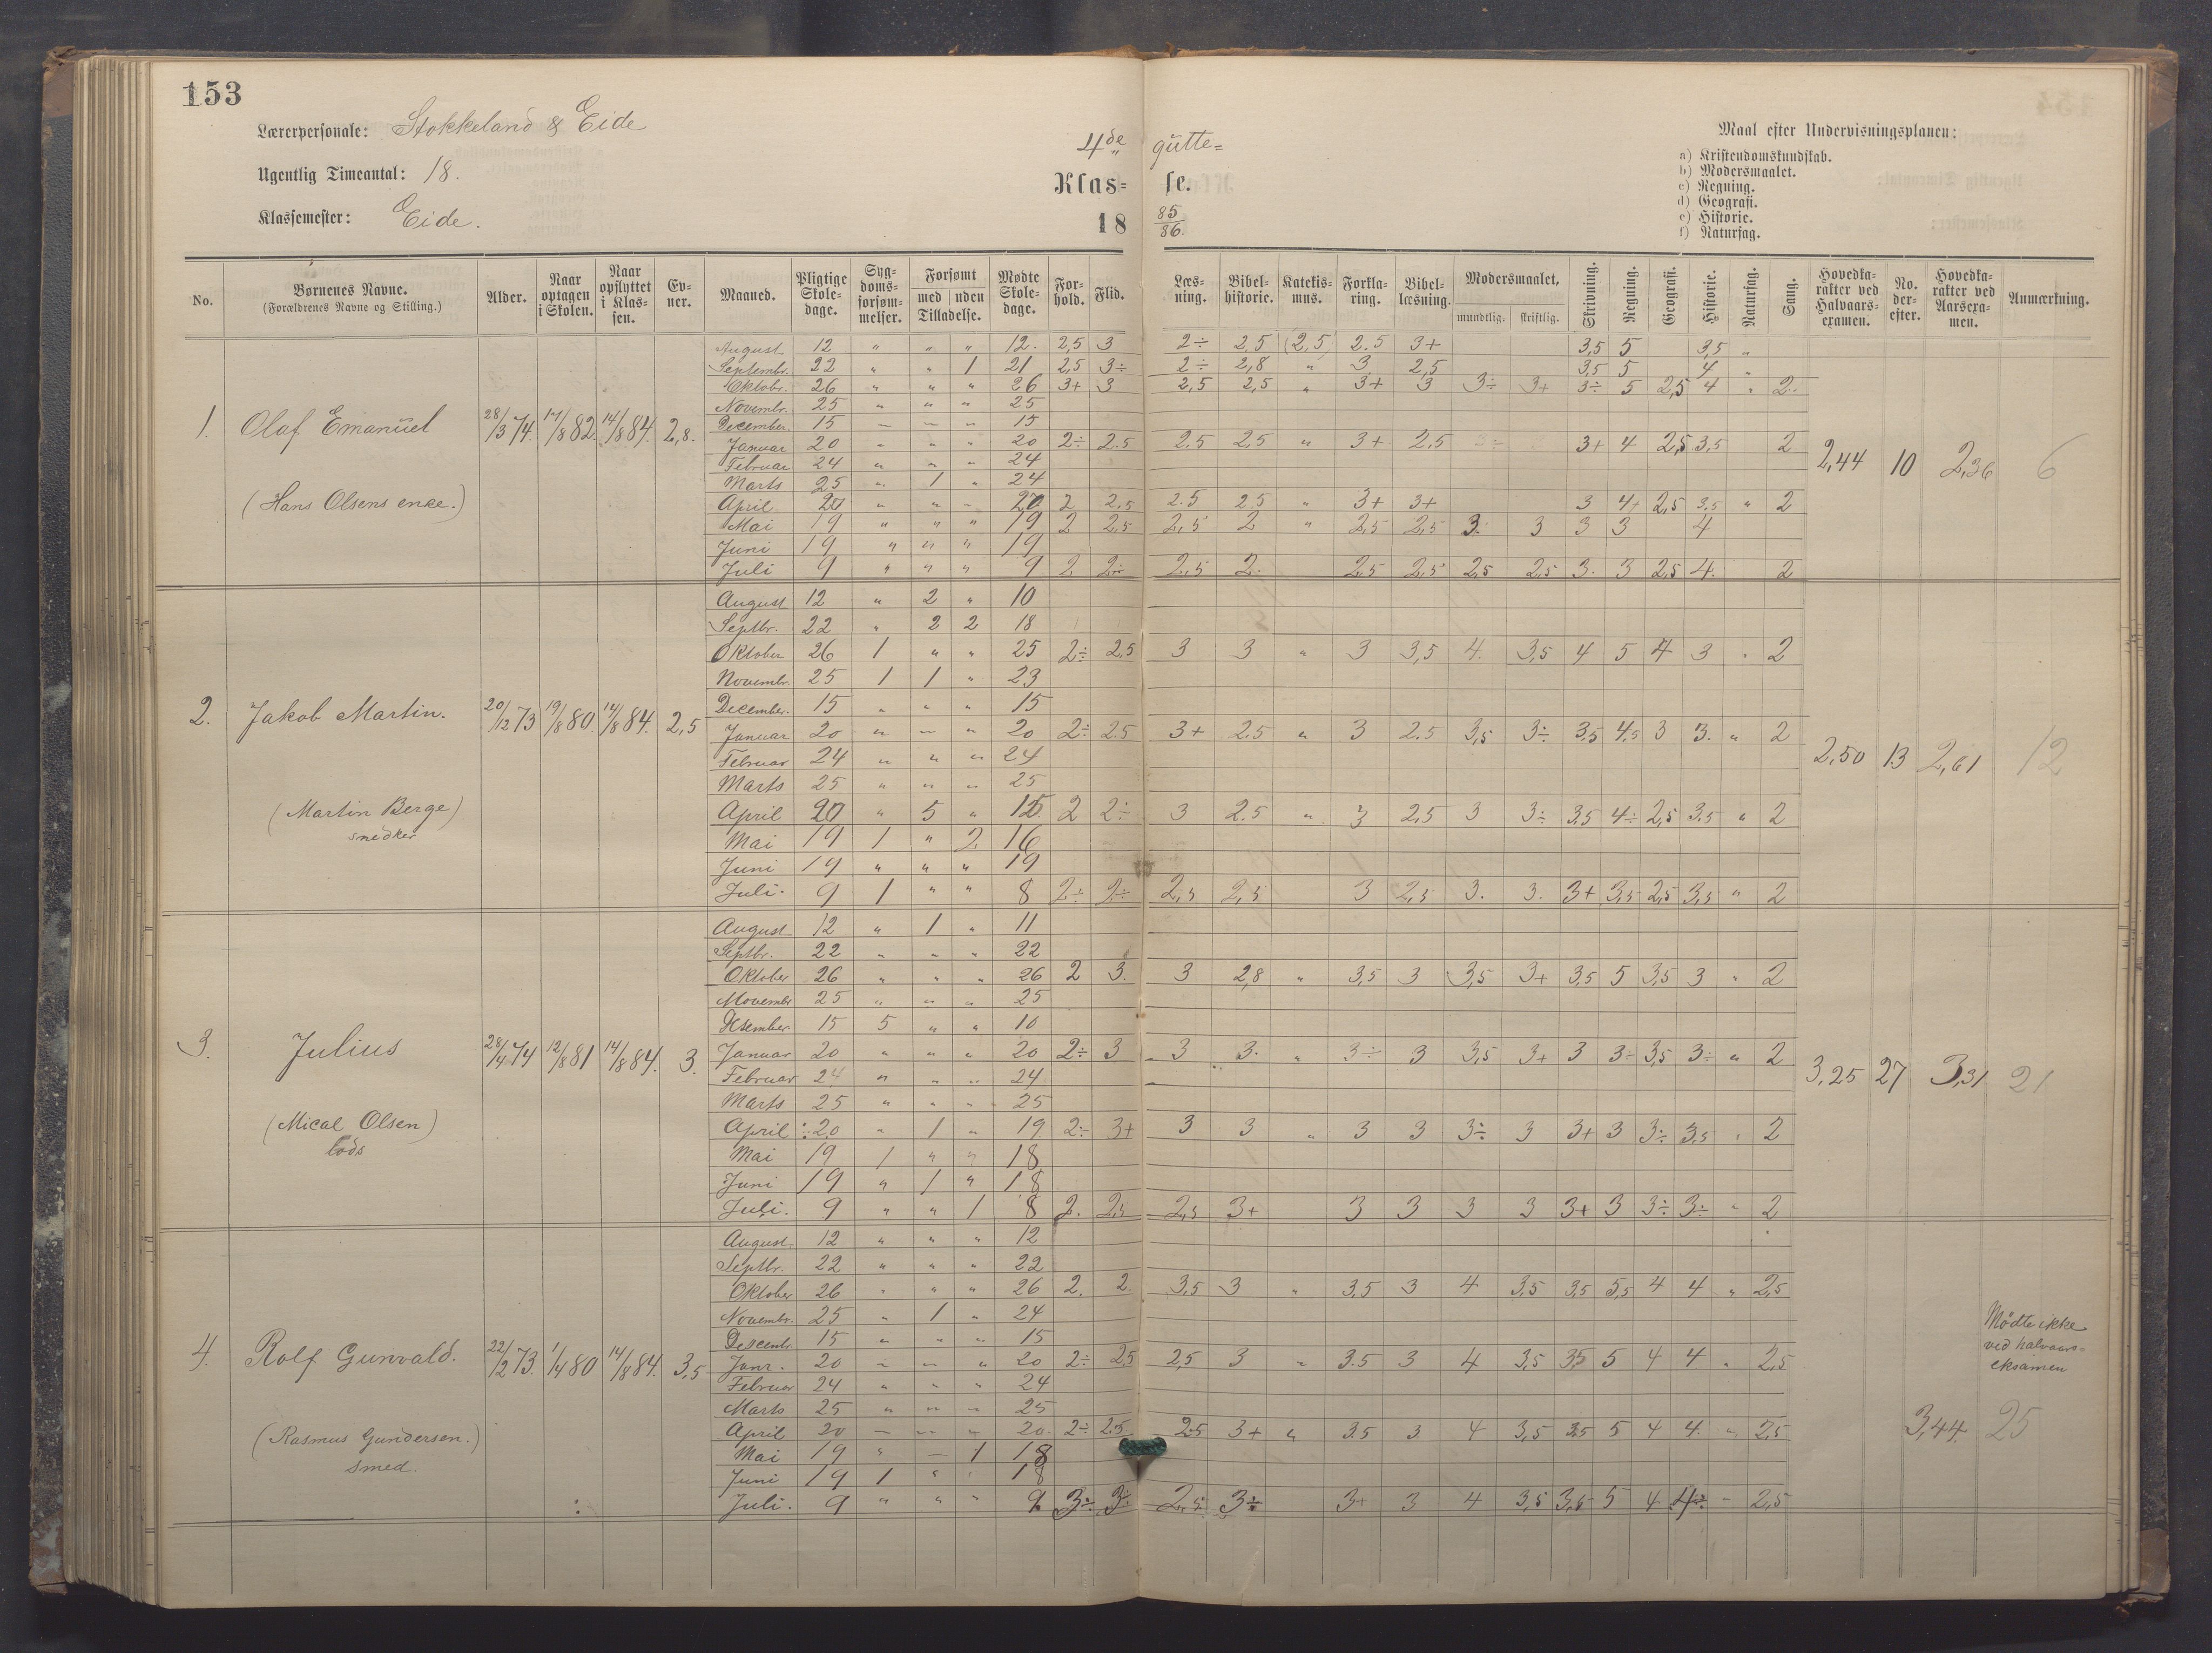 153
Lærerpersonale: Stokkeland & Eide
Ugentlig Timeantal: 18.
Klassemester: Eide.
4de gutte=
Klas= se.
18 85/86.
Maal efter Undervisningsplanen:
a) Kristendomskundskab.
b) Modersmaalet.
c) Regning.
d) Geografi.
e) Historie.
f) Naturfag.
No. | Børnenes Navne. (Forældrenes Navne og Stilling.) | Alder. | Naar optagen i Skolen. | Naar opflyttet i Klassen. | Evner. | Maaned. | Pligtige Skoledage. | Sygdomsforsømmelser. | Forsømt med | uden Tilladelse. | Mødte Skoledage. | Forhold. | Flid. | Læsning. | Bibelhistorie. | Katekismus. | Forklaring. | Bibellæsning. | Modersmaalet, mundtlig. | skriftlig. | Skrivning. | Regning. | Geografi. | Historie. | Naturfag. | Sang. | Hovedkarakter ved Halvaarsexamen. | No. derefter. | Hovedkarakter ved Aarsexamen. | Anmærkning.
1. Olaf Emanuel 28/3 74. 17/8 82. 14/8 84. 2,8.
(Hans Olsens enke.)
August 12 " " " 12. 2,5 3 2÷ 2,5 (2,5) 2.5 3+ 3,5 5 3,5 "
Septembr. 22 " " 1 21 2,5 3÷ 2÷ 2,8 " 3 2,5 3,5 5 4 "
Oktobr. 26 " " " 26 3+ 3 2,5 2,5 " 3+ 3 3÷ 3+ 3÷ 5 2,5 4 " 2.
Novembr. 25 " " " 25
December 15 – – " 15
Januar 20 " " " 20 2÷ 2.5 2.5 2,5 " 3+ 2,5 3÷ 3+ 4 2,5 3,5 2
Februar 24 " " " 24
Marts 25 " 1 " 24
April 20 " " – 20 2 2,5 2.5 2 5 " 3+ 3+ 3 4+ 2,5 3,5 " 2
Mai 19 " " " 19 2 2,5 2,5 2 " 2,5 2,5 3. 3 3 3 4
Juni 19 " " " 19
Juli 9 " " " 9 2 2÷ 2,5 2. 2,5 2,5 2,5 2,5 3. 3 2,5 4. 2
2,44 10 2,36 6
2. Jakob Martin. 20/12 73 19/8 80. 14/8 84. 2,5
(Martin Berge)
snedker
August 12 " 2 " 10
Septbr. 22 " 2 2 18
Oktober 26 1 " " 25 2÷ 2.5 3 3 " 3 3,5 4. 3,5 4 5 4 3 " 2
Novembr. 25 1 1 " 23
December. 15 " " " 15
Januar 20 " – " 20 2÷ 2.5 3+ 2.5 " 3 2.5 3,5 3÷ 3.5 4.5 3 3. " 2
Februar 24 " " " 24
Marts 25 " " " 25
April 20 " 5 " 15 2 2÷ 3 2.5 " 3 2,5 3 3÷ 3.5 4÷ 2,5 3.5 " 2
Mai 19 1 " 2 16
Juni 19 " " " 19
Juli. 9 1 " " 8 2÷ 2÷ 2,5 2,5 3 2,5 3. 3. 3+ 3,5 2,5 3,5 " 2
2,50 13 2,61 12
3. Julius 28/4 74 12/8 81 14/8 84. 3.
(Mical Olsen)
lods
August 12 " 1 " 11
Septbr. 22 " " " 22
Oktober 26 " " " 26 2 3. 3 2,8 " 3,5 3 3,5 3+ 3,5 5 3,5 3 " 2
Novembr 25 " " " 25
Desember 15 5 " " 10
Januar 20 " " " 20 2÷ 3 3 3. " 3÷ 3 3,5 3+ 3 3÷ 3,5 3÷ " 2
Februar 24 " " " 24
Marts 25 " " " 25
April 20 " 1 " 19 2÷ 3+ 3 3 " 3 3 3÷ 3 3+ 3 3÷ 3,5 " 2
Mai 19 1 " " 18
Juni 19 " 1 " 18
Juli. 9 " " 1 8 2. 2,5 2,5 3+ 3 3 3 3 3+ 3 3÷ 3÷ " 2
3,25 27 3,31 21
4. Rolf Gunvald. 22/2 73. 1/4 80 14/8 84. 3,5
(Rasmus Gundersen.)
Smed.
August. 12 " " " 12
Septbr. 22 " " " 22
Oktober 26 " " " 26 2. 2. 3,5 3 " 3.5 3 4 3,5 3,5 5,5 4 4 " 2,5
Novembr. 25 " 1 " 24
Descemb. 15 " " " 15
Janr. 20 – – " 20 2÷ 2,5 2,5 3 " 3.5 3 4 3,5 3,5 5 4 4 " 2,5
Februar 24 " " " 24
Marts 25 " " – 25
April 20 – – " 20. 2÷ 2.5 2.5 3+ " 3.5 3 4 3,5 3,5 5 4 4. " 2,5
Mai 19 " – 1 18
Juni 19 1 " " 18
Juli. 9 " " " 9 3÷ 3÷ 2,5 3÷ 3+ 3 4 3,5 3,5 5 4 4÷ – 2,5
Mödte ikke
ved halvaars=
eksamen
3,44. 25